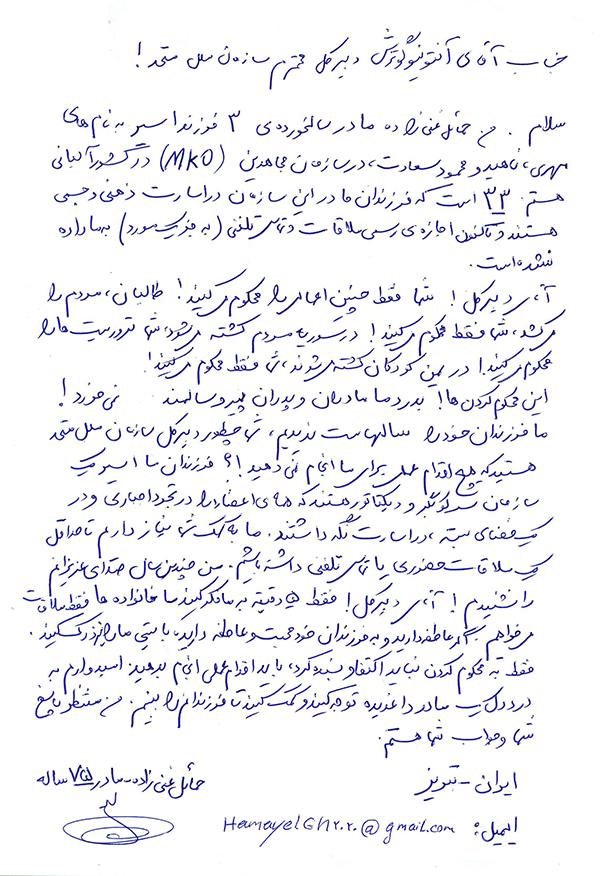 جناب آقای آنتونیو گوترش دبیرکل محترم سازمان ملل متحد!
سلام. من حمائل غنی زاده مادر سالخورده‌ی ۳ فرزند اسیر به نام های
مهری، ناهید و محمود سعادت، در سازمان مجاهدین (MKO) در کشور آلبانی
هستم. ۳۳ است که فرزندان ما در این سازمان در اسارت ذهنی و جسمی
هستند و تاکنون اجازه ی رسمی ملاقات و تماس تلفنی (به جز یک مورد) به ما داده
نشده است.
آقای دبیرکل! شما فقط چنین اعمالی را محکوم می کنید! طالبان، مردم را
می کشد، شما فقط محکوم می کنید! در سوریه مردم کشته می شود، شما تروریست ها را
محکوم می کنید! در یمن کودکان کشته می شوند، شما فقط محکوم می کنید!
این محکوم کردن ها! بدرد ما مادران و پدران پیر و سالمند نمی خورد!
ما فرزندان خود را سالهاست ندیدیم، شما چطور دبیرکل سازمان ملل متحد
هستید که هیچ اقدام عملی برای ما انجام نمی دهید!؟ فرزندان ما اسیر یک
سازمان سرکوبگر و دیکتاتور هستند که همه ی اعضاء را در تجرد اجباری و در
یک فضای بسته، در اسارت نگه داشتند. ما به کمک شما نیاز داریم تا حداقل
یک ملاقات حضوری یا تماس تلفنی داشته باشیم. من چندین سال صدای عزیزانم
را نشنیدم! آقای دبیرکل! فقط ۵ دقیقه به ما فکر کنید ما خانواده ها فقط ملاقات
می خواهم. اگر عاطفه دارید و به فرزندان خود محبت و عاطفه دارید، بایستی ما را نیز درک کنید.
فقط به محکوم کردن نباید اکتفا و بسنده کرد، باید اقدام عملی انجام بدهید. امیدوارم به
درد دل یک مادر داغدیده توجه کنید و کمک کنید تا فرزندانم را ببینم. من منتظر پاسخ
شما و جواب شما هستم.
ایران - تبریز
حمائل غنی زاده - مادر ۷۵ ساله
ایمیل: HamayelGh2020@gmail.com